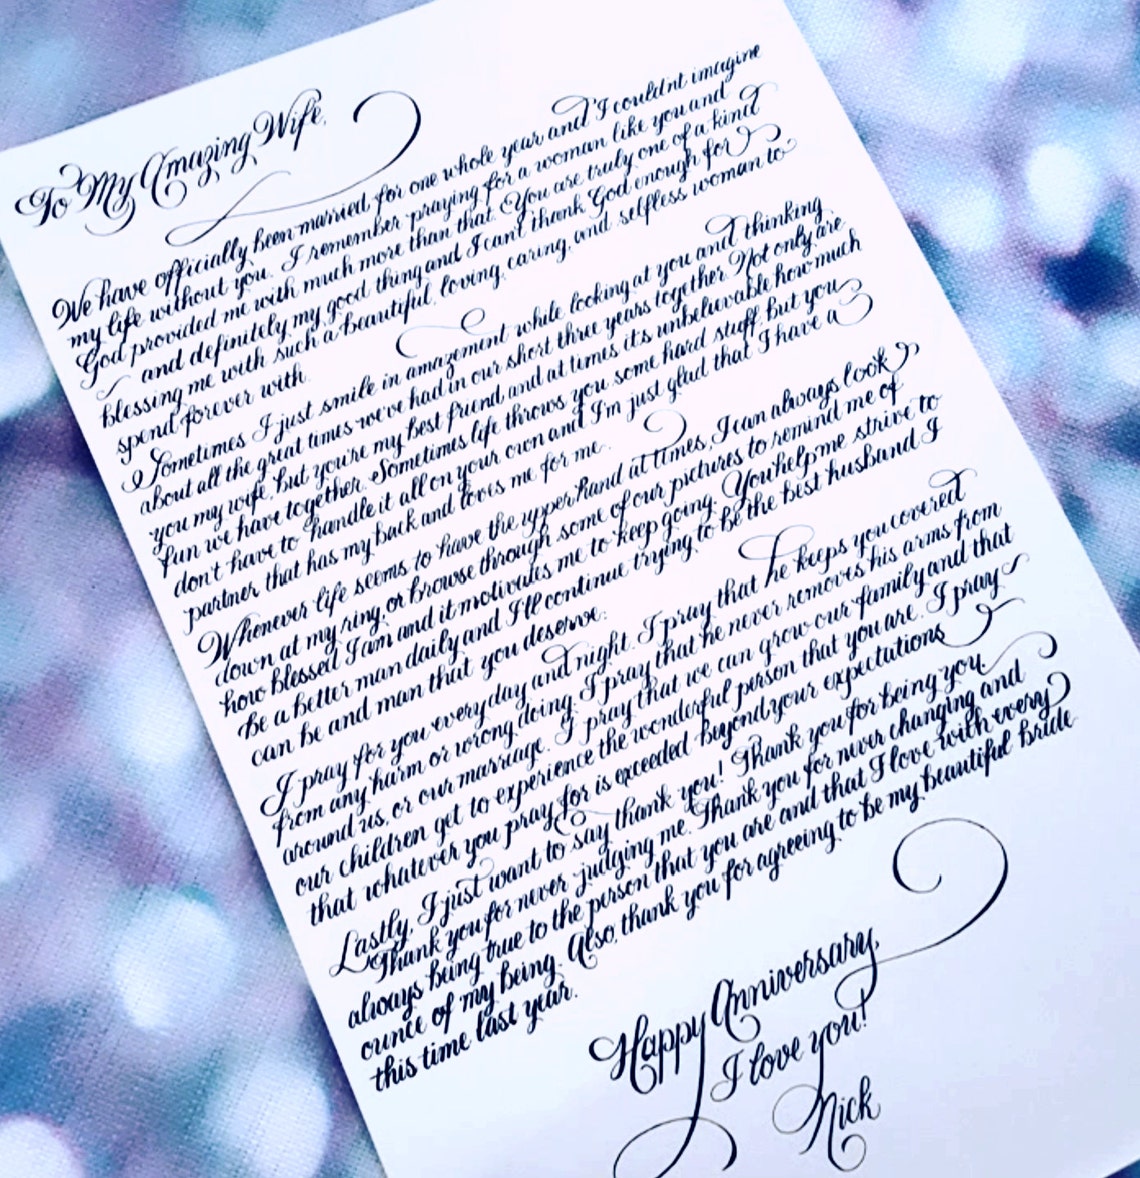 To My Amazing Wife,
We have officially been married for one whole year and I couldn't imagine
my life without you. I remember praying for a woman like you and
God provided me with much more than that. You are truly one of a kind
and definitely my good thing and I can't thank God enough for
blessing me with such a beautiful, loving, caring, and selfless woman to
spend forever with.
Sometimes I just smile in amazement while looking at you and thinking
about all the great times we've had in our short three years together. Not only are
you my wife, but you're my best friend and at times it's unbelievable how much
fun we have together. Sometimes life throws you some hard stuff, but you
don't have to handle it all on your own and I'm just glad that I have a
partner that has my back and loves me for me.
Whenever life seems to have the upper hand at times, I can always look
down at my ring, or browse through some of our pictures to remind me of
how blessed I am and it motivates me to keep going. You help me strive to
be a better man daily and I'll continue trying to be the best husband I
can be and man that you deserve.
I pray for you every day and night. I pray that he keeps you covered
from any harm or wrong doing. I pray that he never removes his arms from
around us, or our marriage. I pray that we can grow our family and that
our children get to experience the wonderful person that you are. I pray
that whatever you pray for is exceeded beyond your expectations
Lastly, I just want to say thank you! Thank you for being you.
Thank you for never judging me. Thank you for never changing and
always being true to the person that you are and that I love with every
ounce of my being. Also, thank you for agreeing to be my beautiful bride
this time last year.
Happy Anniversary,
I love you!
Nick